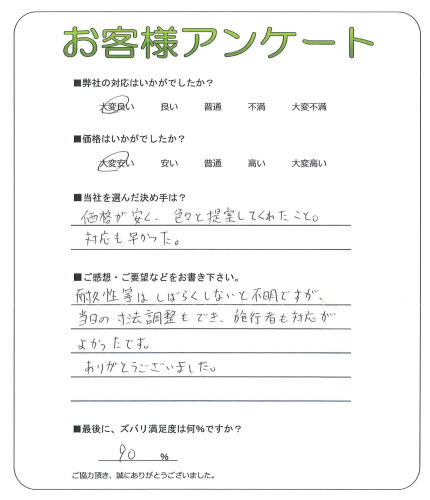 お客様アンケート
■弊社の対応はいかがでしたか?
大変良い 良い 普通 不満 大変不満
■価格はいかがでしたか?
大変安い 安い 普通 高い 大変高い
■当社を選んだ決め手は?
価格が安く、色々と提案してくれたこと。
対応も早かった。
■ご感想・ご要望などをお書き下さい。
耐久性等はしばらくしないと不明ですが、
当日の寸法調整もでき、施行者も対応が
よかったです。
ありがとうございました。
■最後に、ズバリ満足度は何%ですか?
90 %
ご協力頂き、誠にありがとうございました。